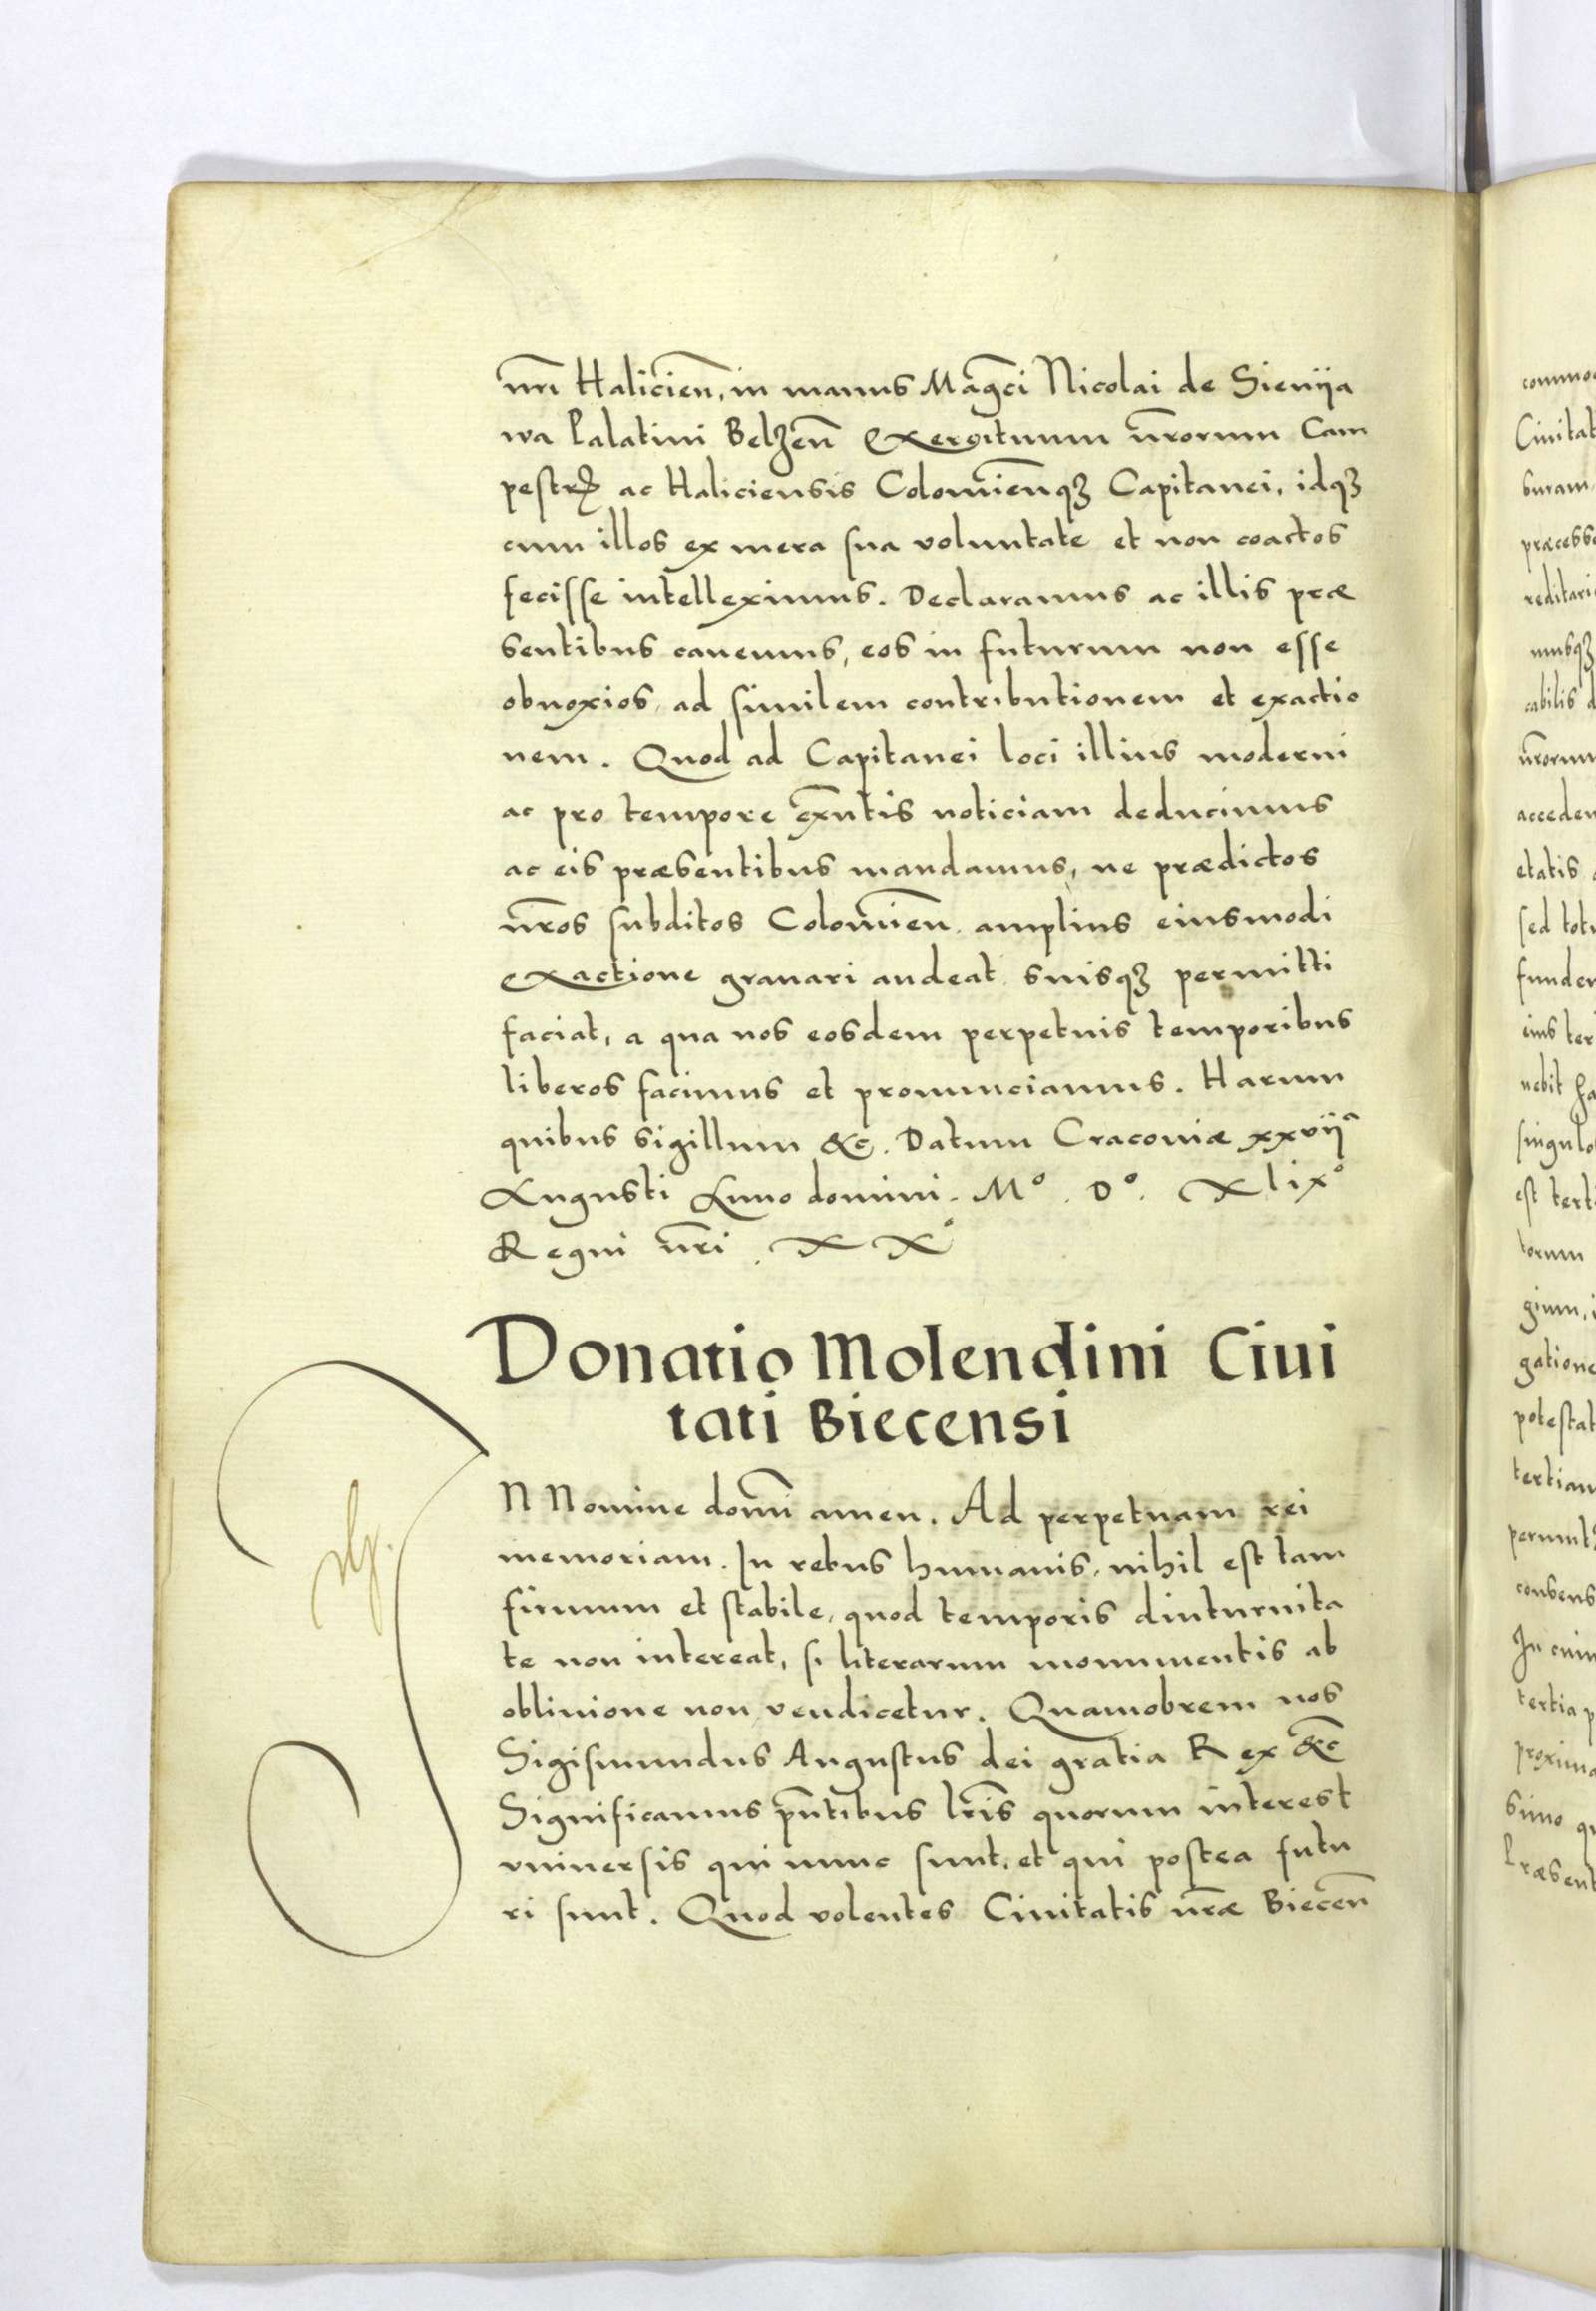 nr̄i Halicien̄, in manus Mag̅ci Nicolai de Sieniia
wa Palatini Belzen̄ Exercituum nr̄orum Cam
pestrꝭ ac Haliciensis Colomien̄qꝫ Capitanei, idqꝫ
cum illos ex mera sua voluntate et non coactos
fecisse intelleximus. Declaramus ac illis præ
sentibus cauemus, eos in futurum non esse
obnoxios, ad similem contributionem et exactio
nem. Quod ad Capitanei loci illius moderni
ac pro tempore ex̄ntis noticiam deducimus
ac eis præsentibus mandamus, ne prædictos
nr̄os subditos Colomien̄. amplius eiusmodi
exactione grauari audeat suisqꝫ permitti
faciat, a qua nos eosdem perpetuis temporibus
liberos facimus et pronunciamus. Harum
quibus sigillum &c. Datum Cracouiæ xxvii^a
Augusti Anno domini. M° . D°. Xlix°
Regni nr̄i . XX°
Donatio Molendini Ciui
tati Biecensi
IN Nomine domī amen. Ad perpetuam rei
memoriam. In rebus humanis, nihil est tam
firmum et stabile, quod temporis diuturnita
te non intereat, si literarum monumentis ab
obliuione non vendicetur. Quamobrem nos
Sigismundus Augustus dei gratia Rex &c̄
Significamus pn̄tibus lr̄is quorum interest
vniuersis qui nunc sunt, et qui postea futu
ri sunt. Quod volentes Ciuitatis nr̄æ Biecen̄